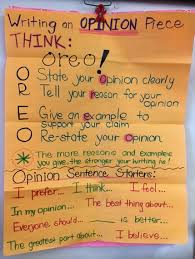 Writing an OPINION Piece
THINK:
Oreo!
O State your opinion clearly
R Tell your reason for your opinion
E Give an example to support your claim
O Re-state your opinion
* The more reasons and examples
you give the stronger your writing is!
Opinion Sentence Starters:
I prefer... I think... I feel...
In my opinion... The best thing about...
Everyone should... is better...
The greatest part about... I believe...